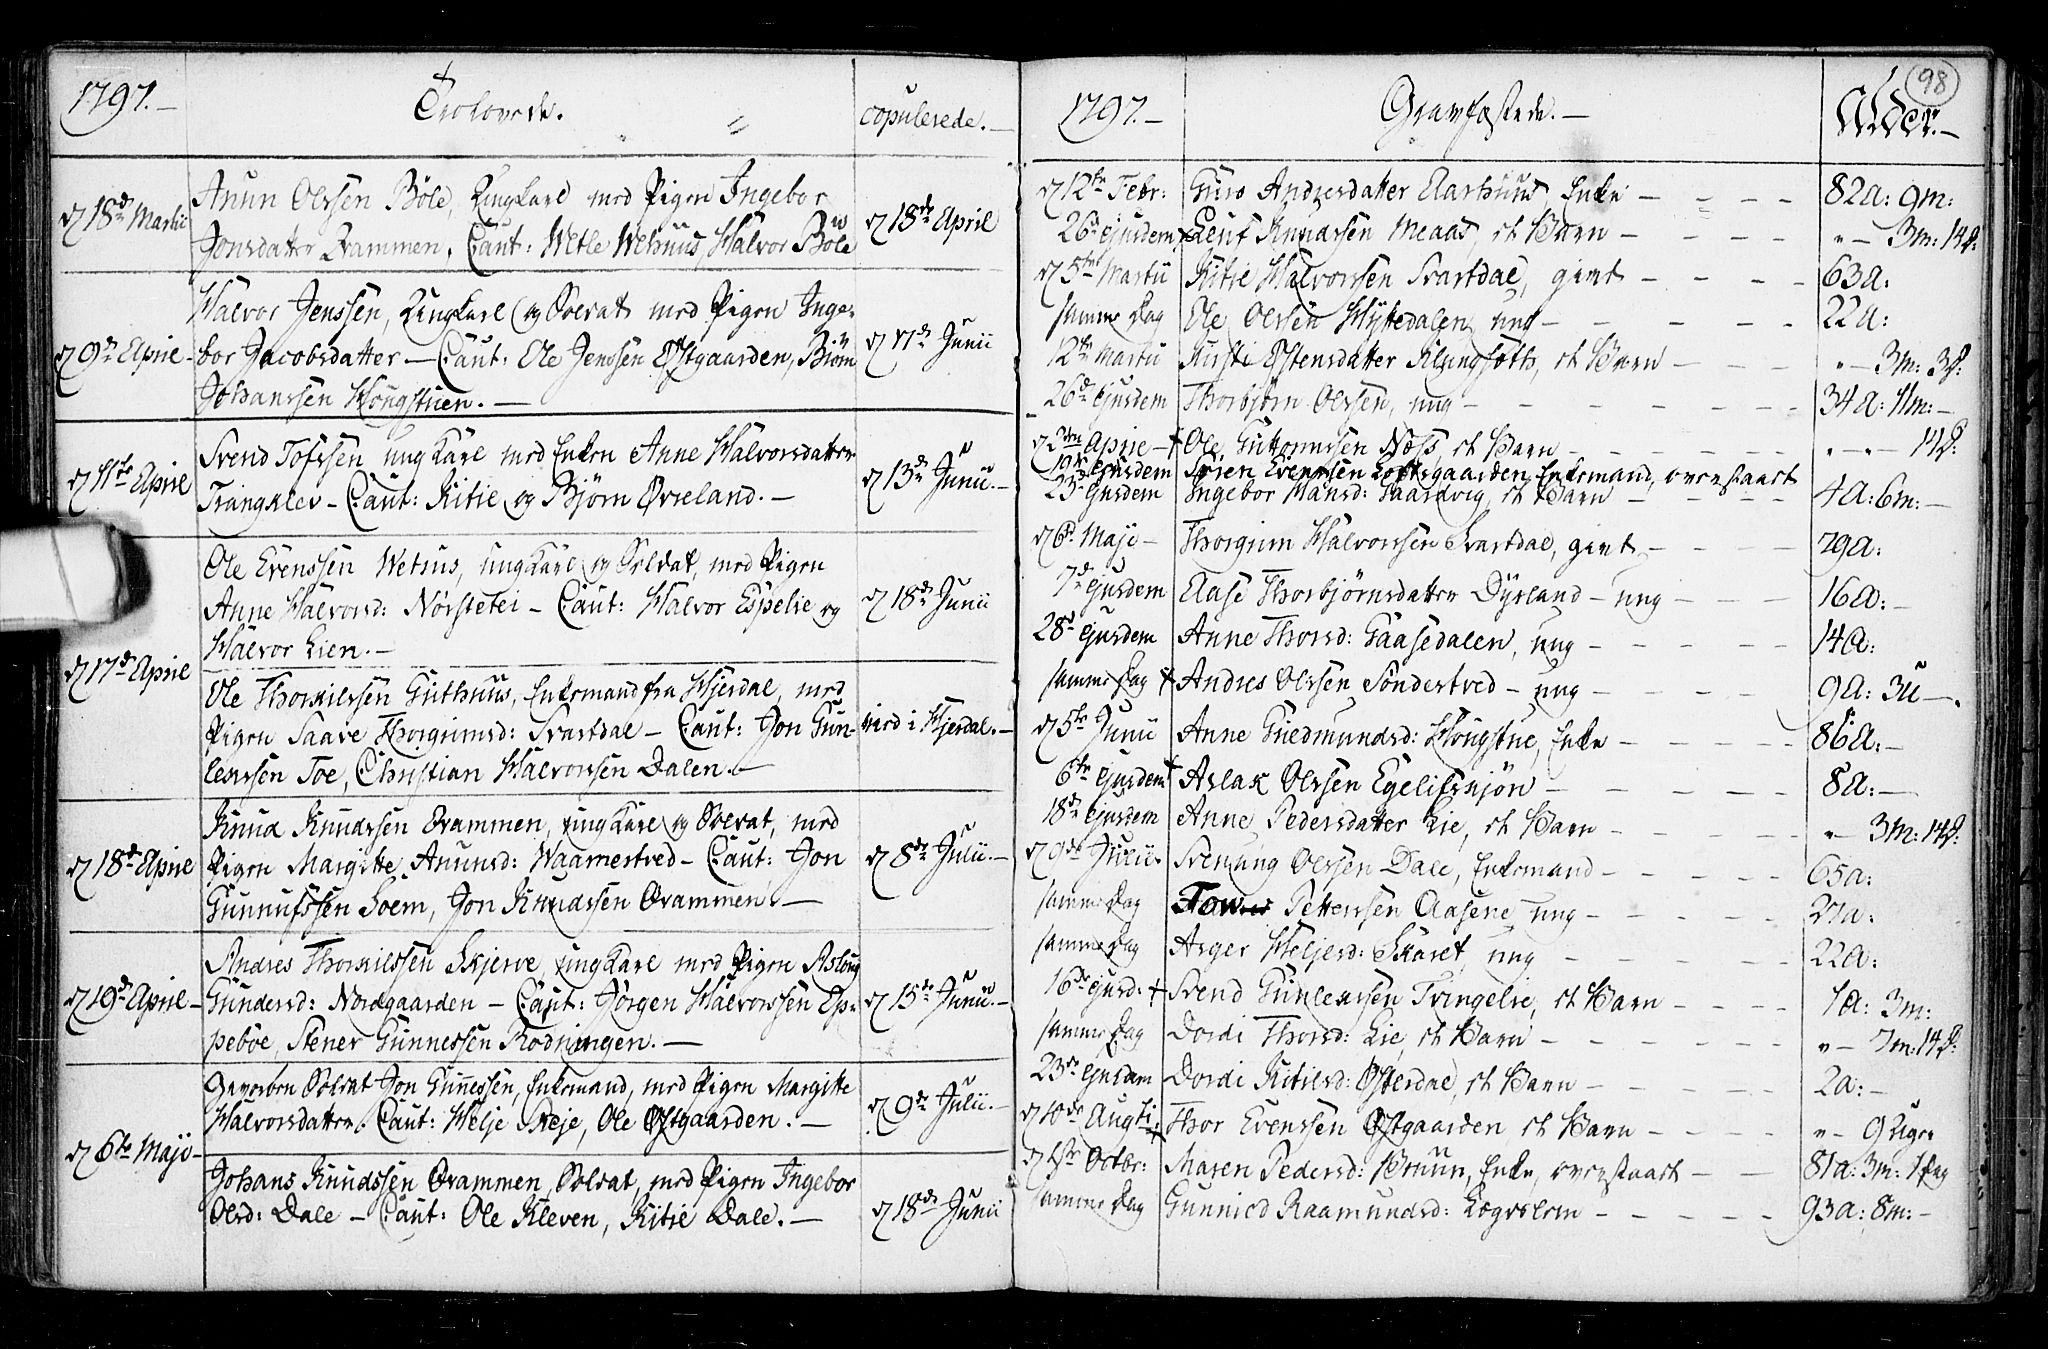 1797.
Trolovede.
copulerede.
d 18de Martii
Anun Olssen Bøle, Ungkarl med Pigen Ingebor
Jonsdatter Qvammen. Caut: Wetle Wetshuus, Halvor Bøle
d 18de April
d 9de April
Halvor Jenssen, Ungkarl og Soldat med Pigen Inge-
bor Jacobsdatter — Caut: Ole Jenssen Østgaarden, Biørn
Johanssen Hougstuen.
d 17de Junii
d 11te April
Svend Tofssen ungkarl med Enken Anne Halvorsdatter
Trangklev — Caut: Kitil og Bjørn Øvreland.
d 13de Junii
d 17de April
Ole Evenssen Wetsus, ungkarl og Soldat, med Pigen
Anne Halvorsd: Norsteten — Caut: Halvor Espelie og
Halvor Lien.
d 18de Junii
Ole Thorkilssen Guthuus, Enkemand fra Hjerdal, med
Pigen Saave Thorgrimsd: Svartdal — Caut: Jon Gun-
leikssen Toe, Christian Halvorssen Dalen.
viet i Hjerdal.
d 18de April
Knud Knudssen Qvammen, ungkarl og Soldat, med
Pigen Margitte Anunsd: Waamestved — Caut: Jon
Gunnufssen Loem, Jon Knudssen Qvammen.
d 8de Julii.
d 19de April
Andres Thorkilssen Skjerve, ungkarl med Pigen Aslaug
Gundersd: Nordgaarden — Caut: Jørgen Halvorssen Ep-
pebøe, Stener Gunnessen Rodningen.
d 15de Junii.
d 6te Maji
Gevorben Soldat Jon Gunnessen, Enkemand, med Pigen Margitte
Halvorsdatter. Caut: Helje Neje, Ole Østgaarden.
d 9de Julii.
Johans Knudssen Qvammen, Soldat, med Pigen Ingebor
Olsd: Dale — Caut: Ole Kleven, Kitil Dale.
d 18de Junii
98
1797. Gravfæstede. Alder.
d 12te Febr: Guro Andersdatter Aarhuus, Enke 82a: 9m:
26de ejusdem Leuf Knudssen Meaas, et Barn 3m: 14d:
d 5te Martii Kitil Halvorssen Svartdal, givt 63a:
samme Dag Ole Olssen Hyttedalen, ung 22a:
12te Martii Kirsti Østensdatter Klungsøtt, et Barn 3m: 3d:
26de ejusdem Thorbjørn Olssen, ung 34a: 11m:
d 2den April + Ole Guttormssen Næss, et Barn 14d:
19de ejusdem Søren Evenssen Loftsgaarden, Enkemand, ovenstaaet
23de ejusdem Ingebor Hansd: Gaardvig, et Barn 4a: 6m:
d 6te Maji Thorgrim Halvorssen Svartdal, givt 79a:
7de ejusdem Aase Thorbjørnsdatter Dyrland — ung 16a:
28de ejusdem Anne Thorsd: Gaasedalen, ung 14a:
samme Dag + Andres Olssen Sønderstved — ung 9a: 3u
d 5te Junii Anne Guedmundsd: Hougstue, Enke 86a:
6te ejusdem Aslak Olssen Egelifskjøn 8a:
18de ejusdem Anne Pedersdatter Lie, et Barn 3m: 14d:
d 9de Julii Svenung Olssen Dale, Enkemand 65a:
samme Dag Tow Petterssen Aasene, ung 27a:
samme Dag Asger Heljesd: Skaret, ung 22a:
16de ejusd: + Svend Gunleikssen Tvingelie, et Barn 1a: 3m:
samme Dag Dordi Thorsd: Lie, et Barn 7m: 14d:
23de ejusdem Dordi Kitilsd: Østerdal, et Barn 2a:
d 10de Augti: + Thor Evenssen Østgaarden, et Barn 9 Uger
d 1ste Octbr: Maren Pedersd: Bruun, Enke, ovenstaaet 81a: 3m: 1 Dag
samme Dag Gunnild Raamundsd: Lægreidn 93a: 8m: